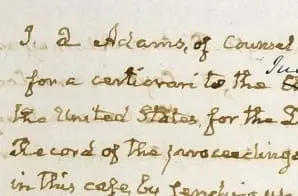 J. Q Adams, of Counsel
for a certiorari to, the
the United States, for the
Record of the proceedings
in this case, by sending